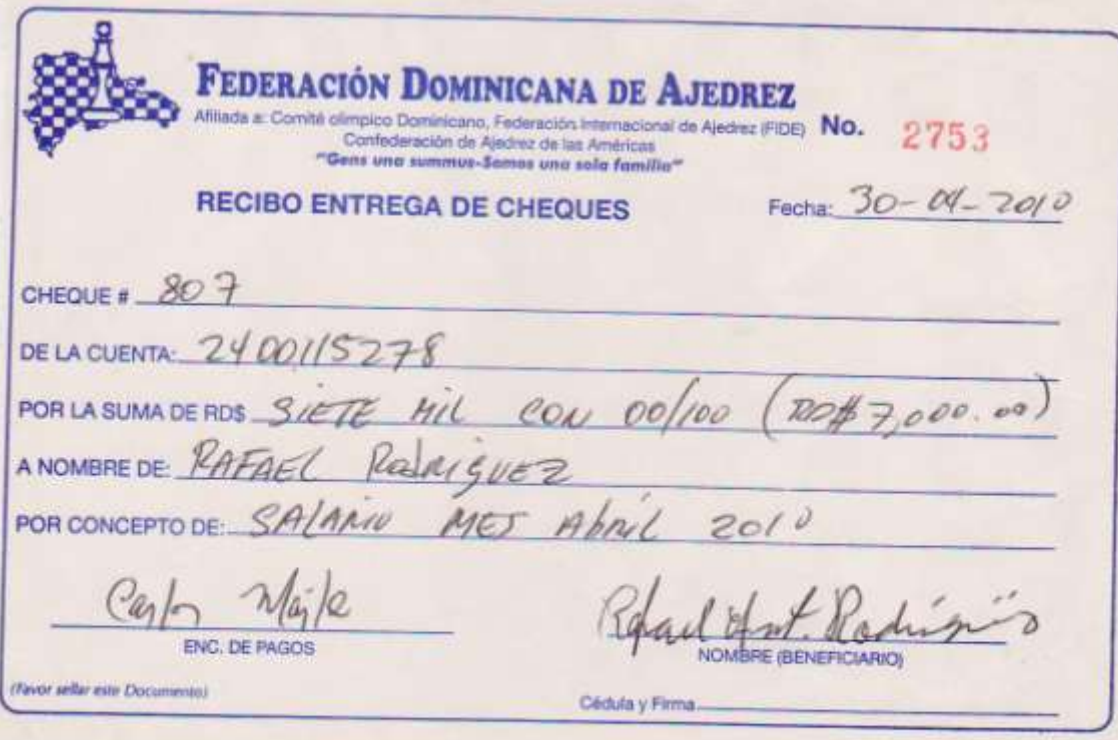 FEDERACIÓN DOMINICANA DE AJEDREZ
Afiliada a: Comité olimpico Dominicano, Federación Internacional de Ajedrez (FIDE) No. 2753
Confederación de Ajedrez de las Américas
"Gens una summus-Somos una sola familia"
RECIBO ENTREGA DE CHEQUES Fecha: 30-04-2010
CHEQUE # 807
DE LA CUENTA: 2400115278
POR LA SUMA DE RD$ SIETE MIL CON 00/100 (RD$ 7,000.00)
A NOMBRE DE: RAFAEL Rodriguez
POR CONCEPTO DE: SALARIO MES Abril 2010
Rafael Ant. Rodríguez
ENC. DE PAGOS NOMBRE (BENEFICIARIO)
(Favor sellar este Documento) Cédula y Firma